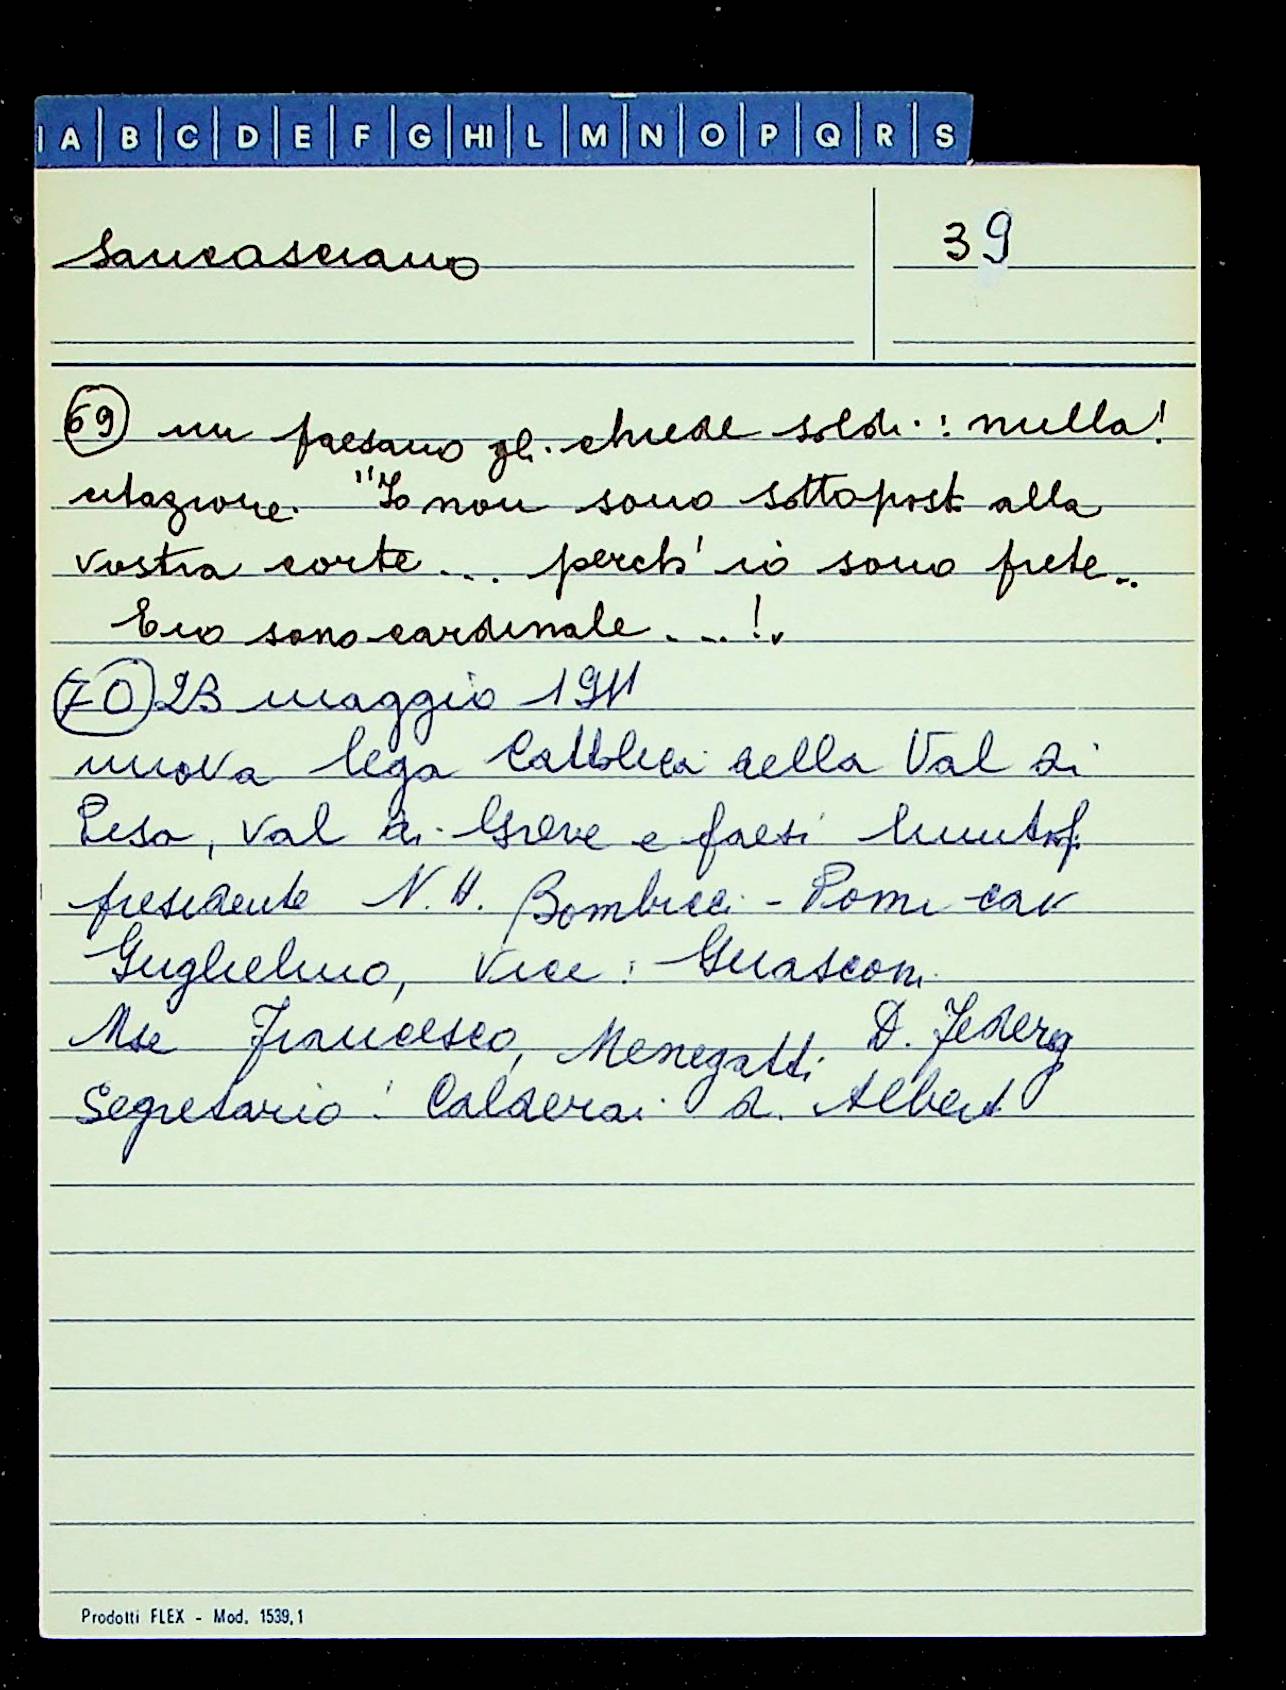 A B C D E F G HI L M N O P Q R S
Sancasciano
39
69 un paesano gli chiede soldi: nulla!
citazione. "Io non sono sottopost alla
vostra corte ... perch' io sono prete..
E io sono cardinale ...!
70 23 maggio 1911
nuova lega Cattolica della Val di
Pesa, Val di Greve e paesi limitrof.
presidente N.H. Bombicci-Pomi cav
Guglielmo, Vice: Guasconi
Mse Francesco, Menegatti D. Federig
Segretario: Calderai d. Albert
Prodotti FLEX - Mod. 1539,1